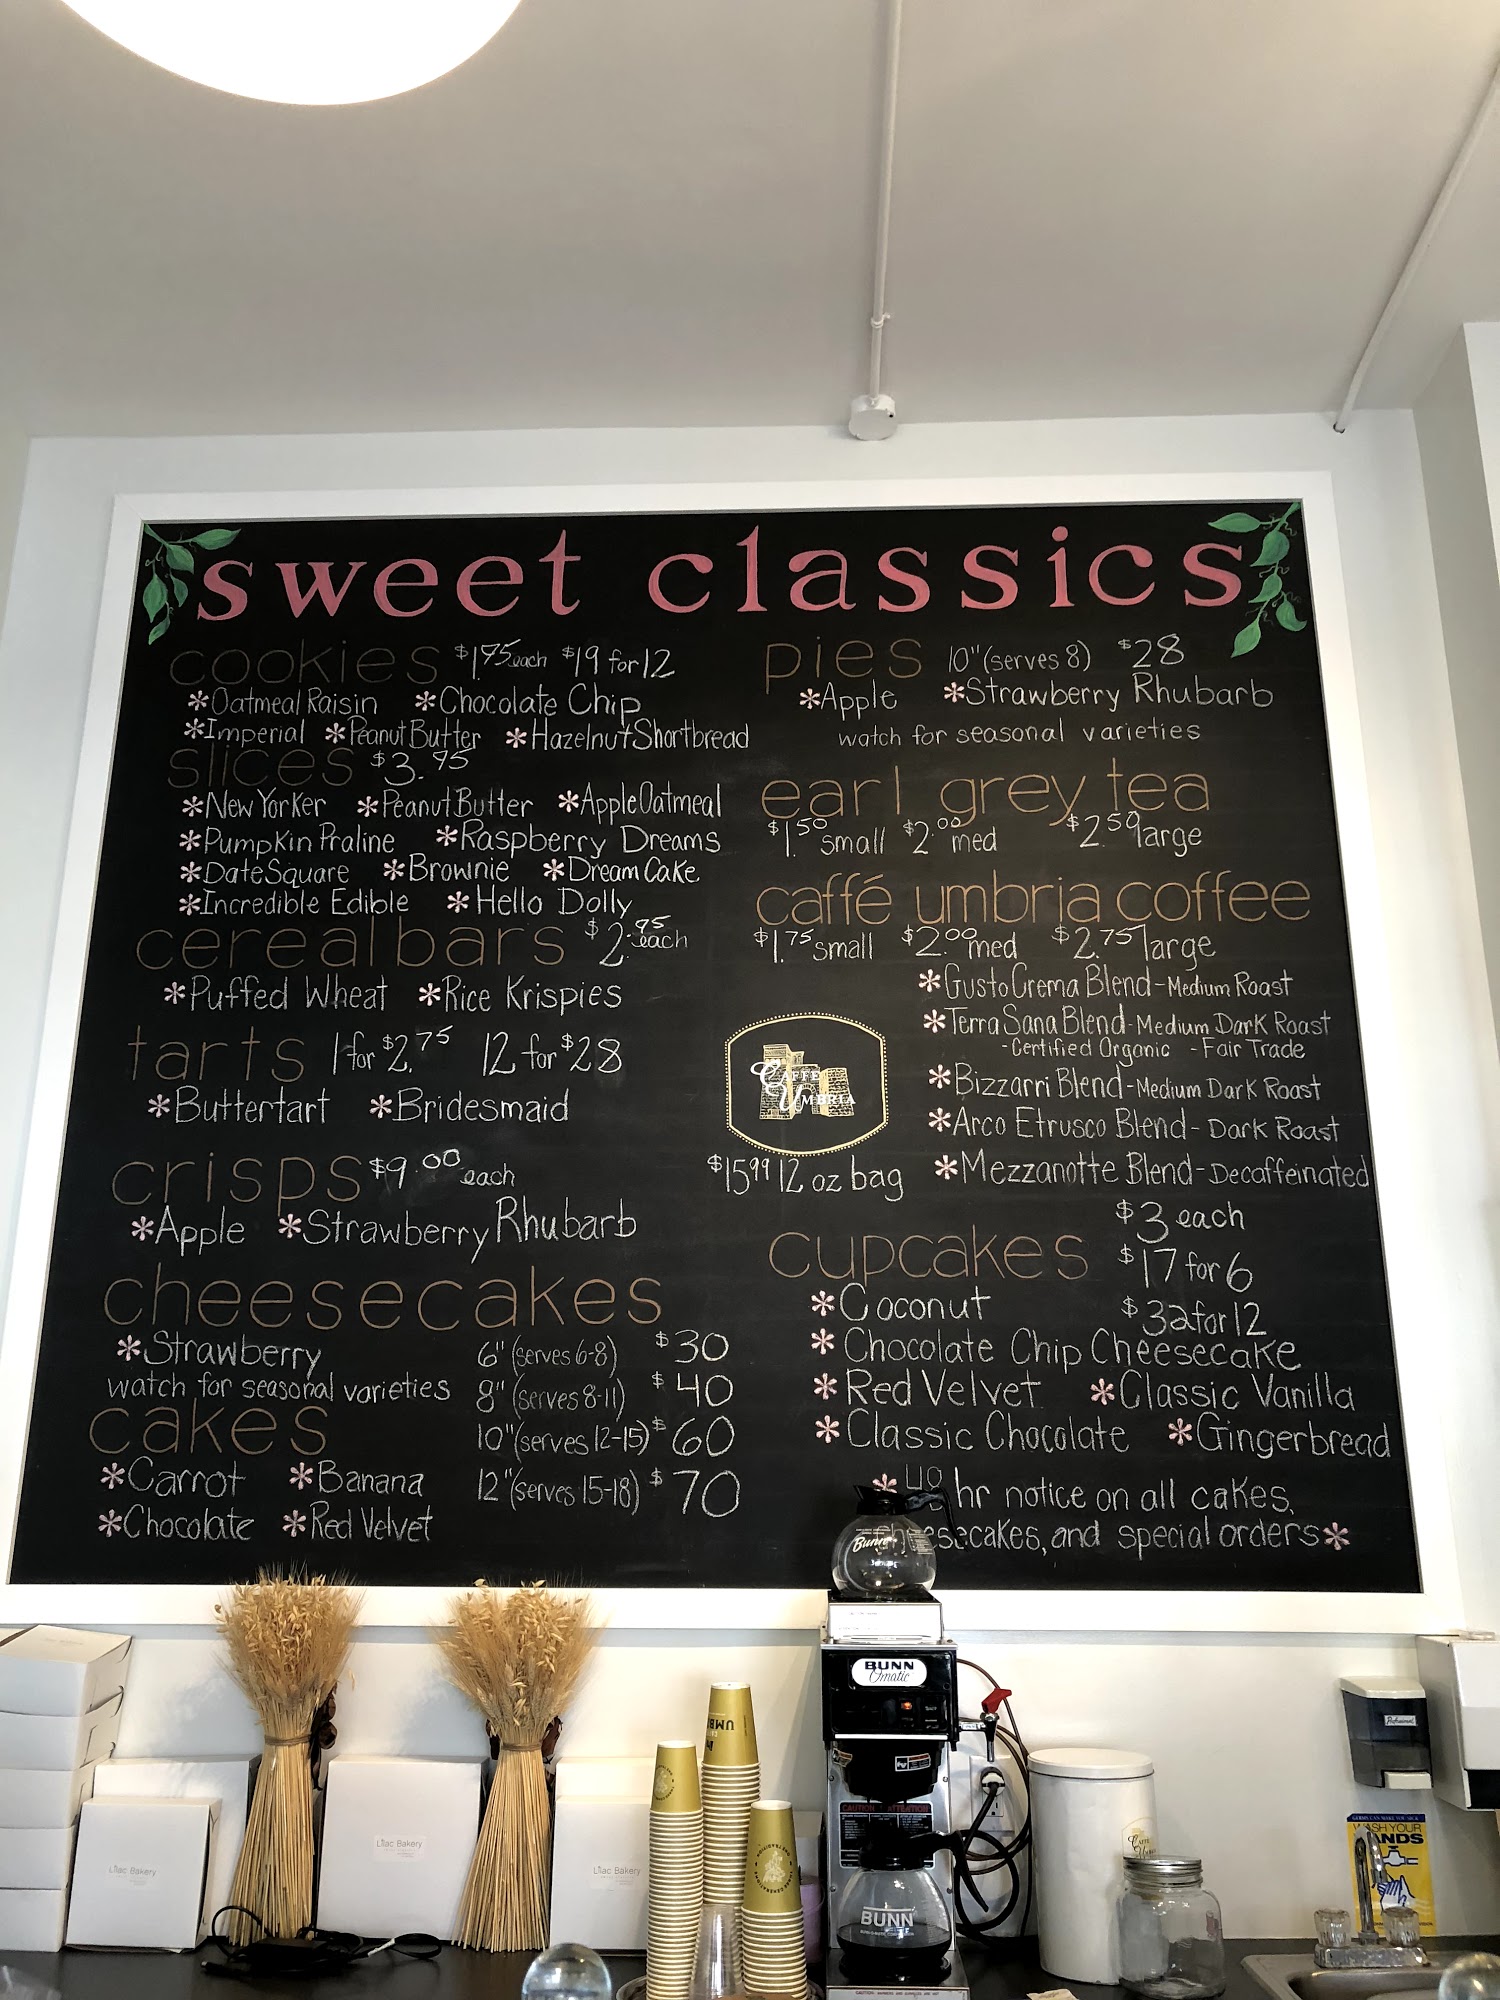 sweet classics
cookies $1.75 each $19 for 12
*Oatmeal Raisin *Chocolate Chip
*Imperial *Peanut Butter *Hazelnut Shortbread
slices $3.95
*New Yorker *Peanut Butter *Apple Oatmeal
*Pumpkin Praline *Raspberry Dreams
*Date Square *Brownie *Dream Cake
*Incredible Edible *Hello Dolly
cereal bars $2.95 each
*Puffed Wheat *Rice Krispies
tarts 1 for $2.75 12 for $28
*Buttertart *Bridesmaid
crisps $9.00 each
*Apple *Strawberry Rhubarb
cheesecakes
*Strawberry
watch for seasonal varieties
cakes
*Carrot *Banana
*Chocolate *Red Velvet
6" (serves 6-8) $30
8" (serves 8-11) $40
10" (serves 12-15) $60
12" (serves 15-18) $70
pies 10" (serves 8) $28
*Apple *Strawberry Rhubarb
watch for seasonal varieties
earl grey tea
$1.50 small $2.00 med $2.50 large
caffé umbria coffee
$1.75 small $2.00 med $2.75 large
*Gusto Crema Blend - Medium Roast
*Terra Sana Blend - Medium Dark Roast
- Certified Organic - Fair Trade
*Bizzarri Blend - Medium Dark Roast
*Arco Etrusco Blend - Dark Roast
*Mezzanotte Blend - Decaffeinated
CAFFÈ
UMBRIA
$15.99 12 oz bag
cupcakes
$3 each
$17 for 6
$32 for 12
*Coconut
*Chocolate Chip Cheesecake
*Red Velvet *Classic Vanilla
*Classic Chocolate *Gingerbread
*48 hr notice on all cakes,
cheesecakes, and special orders*
Bunn
BUNN
Omatic
CAUTION ATTENTION
BUNN
Lilac Bakery
Lilac Bakery
Lilac Bakery
UMB
CAFFÈ
WASH YOUR
HANDS